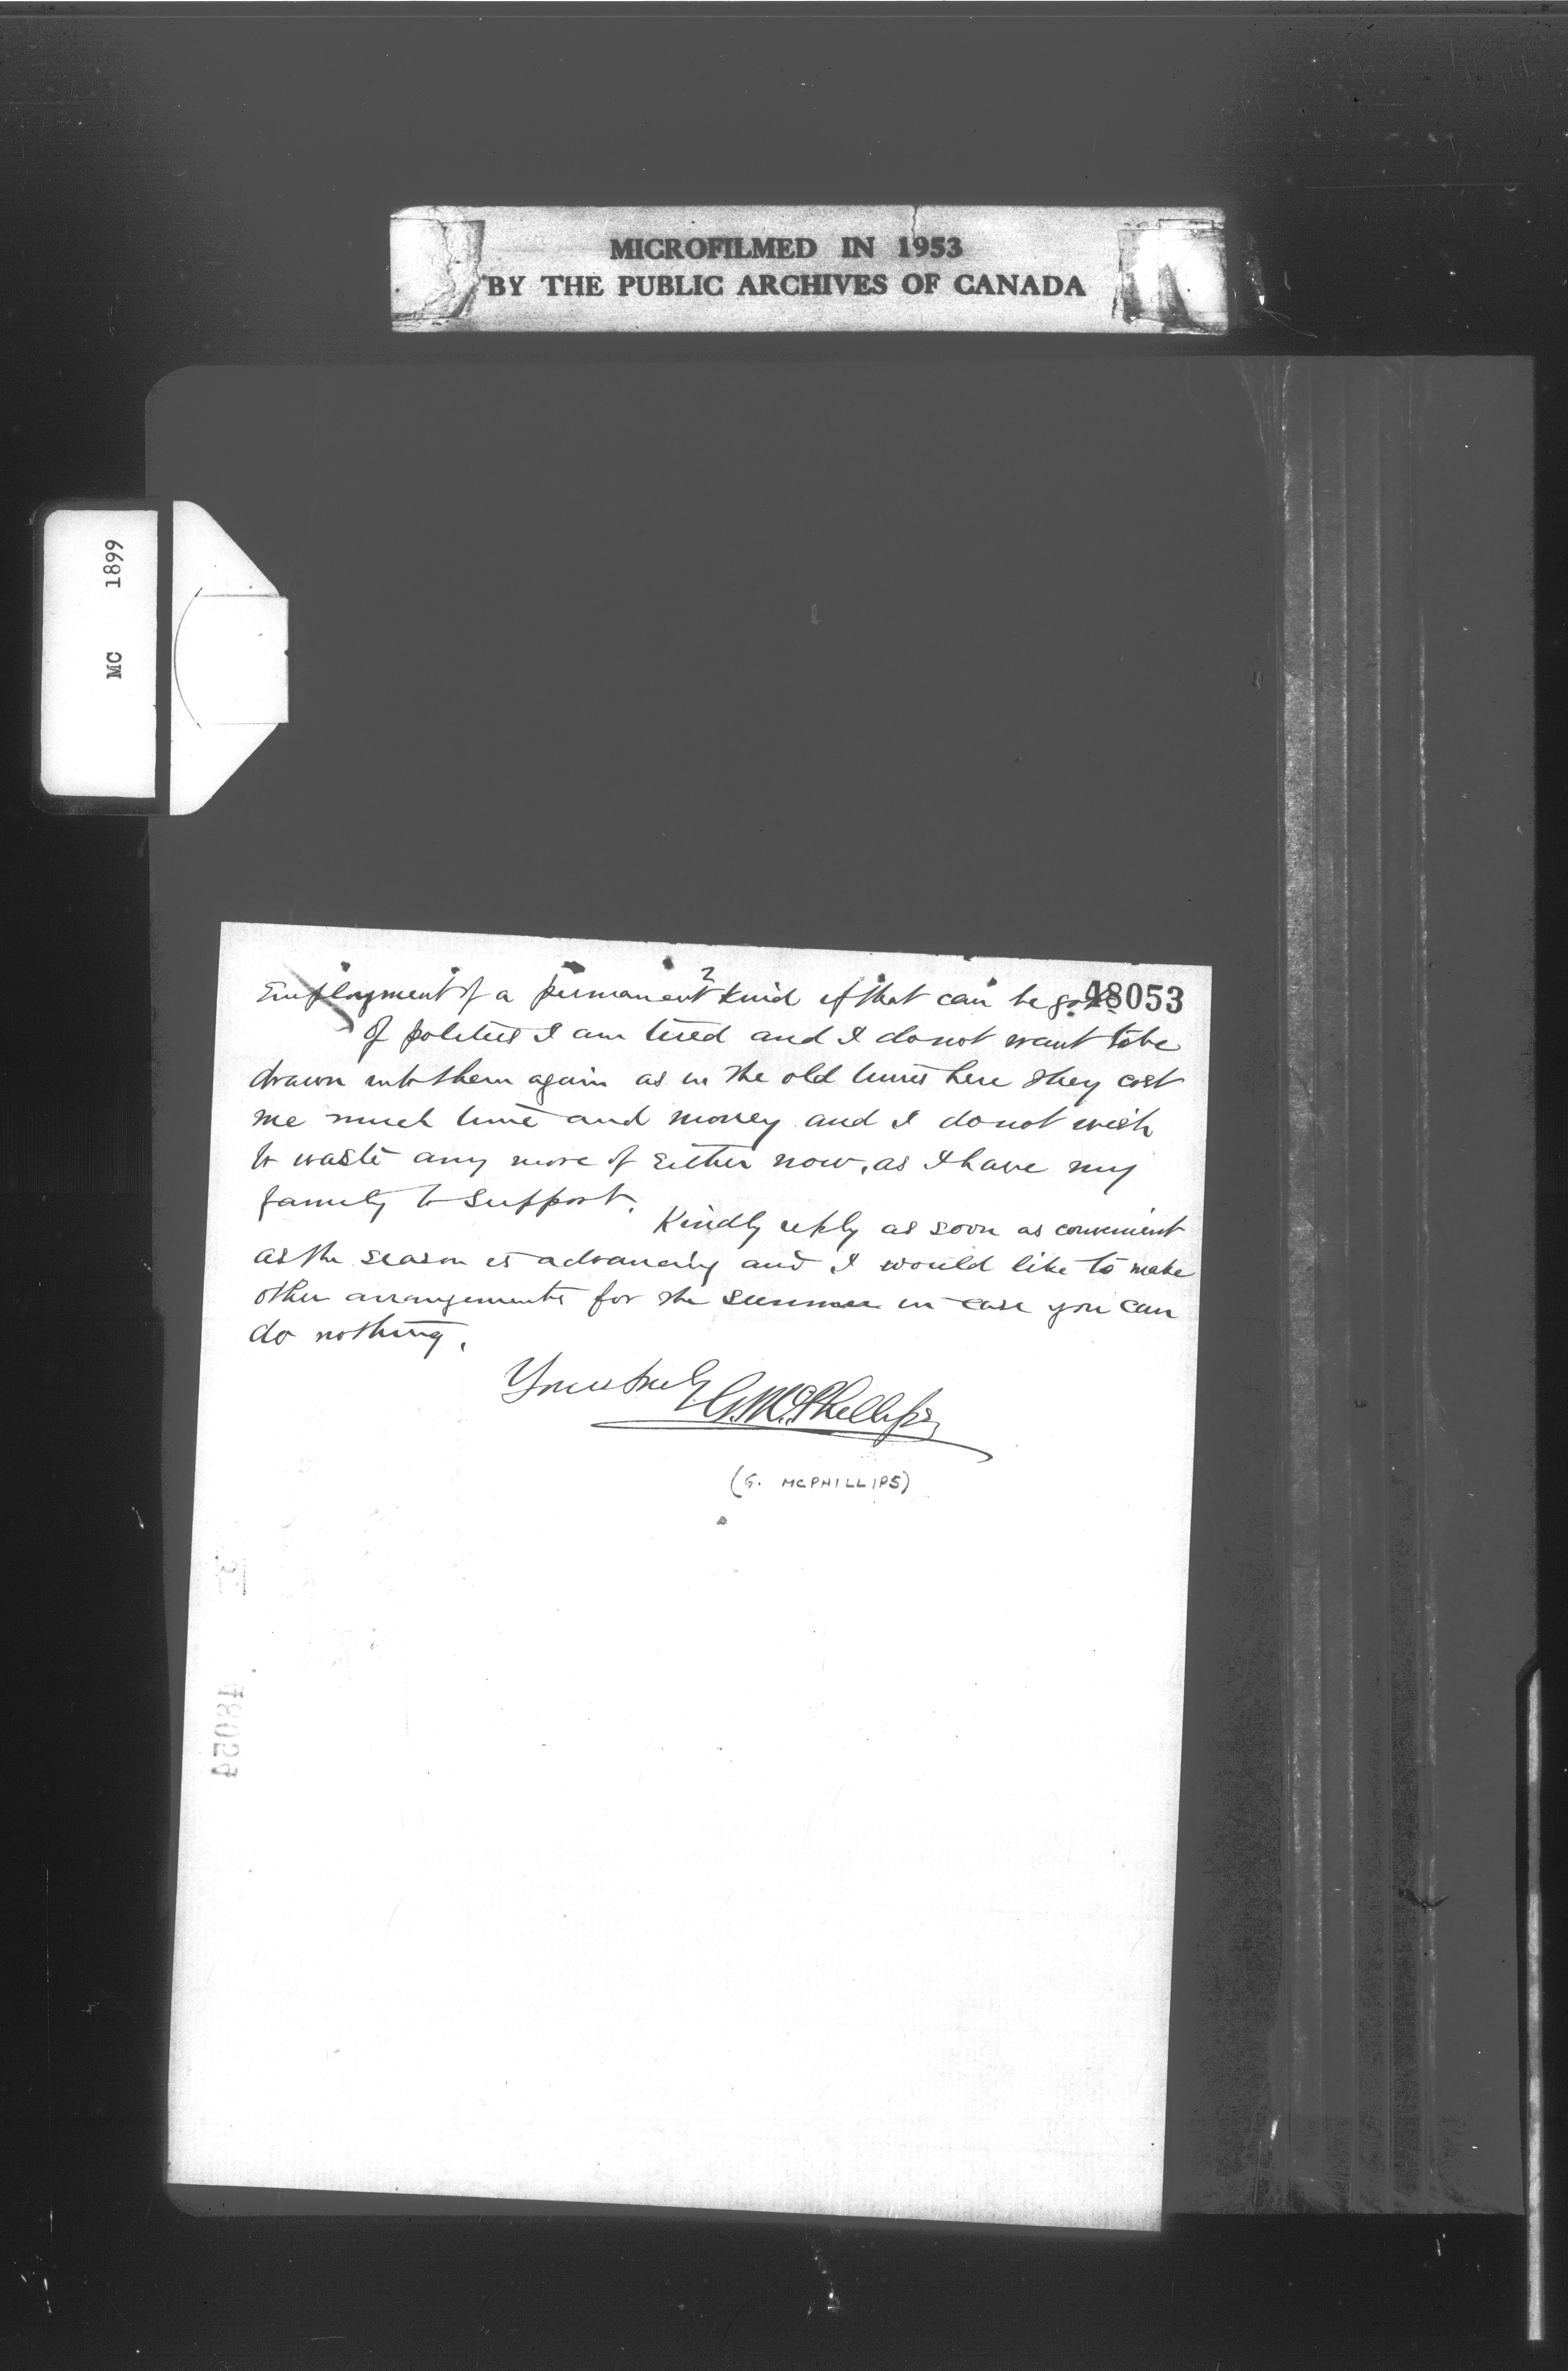 MICROFILMED IN 1953
BY THE PUBLIC ARCHIVES OF CANADA
MC 1899
2
48053
Employment of a permanent kind if that can be got.
Of politics I am tired and I do not want to be
drawn into them again as in the old times here they cost
me much time and money and I do not wish
to waste any more of either now, as I have my
family to support.
Kindly reply as soon as convenient
as the season is advancing and I would like to make
other arrangements for the summer in case you can
do nothing.
Yours truly
G. McPhillips
(G. MCPHILLIPS)
48054